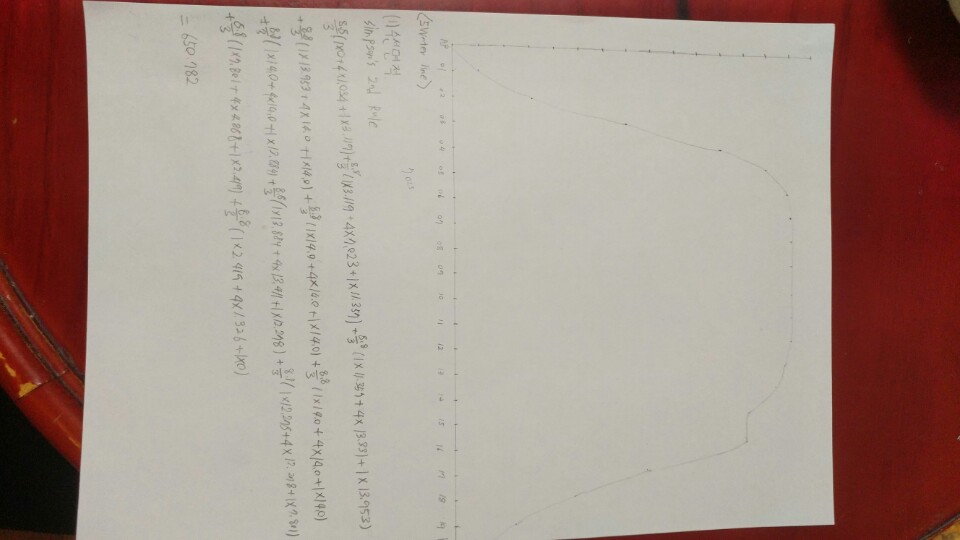 AP 01 02 03 04 05 06 07 08 09 10 11 12 13 14 15 16 17 18 19
<5Water line>
7.023
(1) 수선면적
Simpson's 2nd Rule
8.8/3 (1×0+4×1.034+1×3.119)+8.8/3 (1×3.119+4×7.023+1×11.357)+8.8/3 (1×11.357+4×13.331+1×13.953)
+8.8/3 (1×13.953+4×14.0+1×14.0)+8.8/3 (1×14.0+4×14.0+1×14.0)+8.8/3 (1×14.0+4×14.0+1×14.0)
+8.8/3 (1×14.0+4×14.0+1×13.884)+8.8/3 (1×13.884+4×13.411+1×12.278)+8.8/3 (1×12.278+4×12.278+1×7.801)
+8.8/3 (1×7.801+4×4.858+1×2.419)+8.8/3 (1×2.419+4×1.326+1×0)
= 650.782